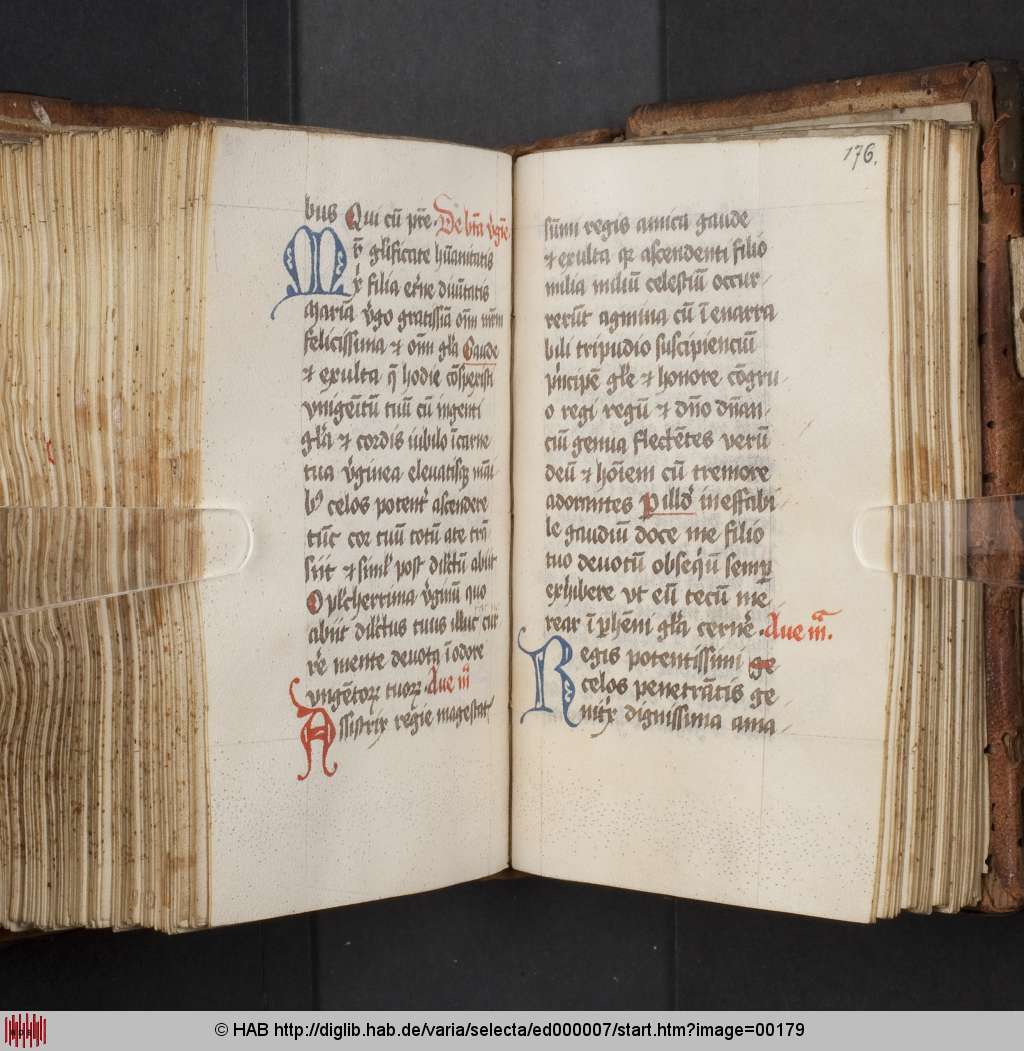 bus Qui cū pr̄e · De btā v̓gīe
M r̄ gl̓ificate hūanitatis
x̓ filia et̓ne diūitatis
Maria v̓go gratissīa om̄
felicissima et om̄ gl̓a Gaude
et exulta q̄ hodie cōspexisti
vnigēitū tuū cū ingenti
gl̓a et cordis iubilo ī carne
tua v̓ginea eleuatisq̨ māi
b⁹ celos potent̓ ascendere
tūc cor tuū totū a te trā
siit et simł post dilc̄tū abiit
O pulc̓herrima v̓ginū quo
abiit dilc̄tus tuus illuc cur
r̄e mente deuota ī odore
vngētoꝝ tuoꝝ · Aue m̄
Assistrix regie magestat̓
sūmi regis amica gaude
et exulta qꝛ ascendenti filio
milia miliū celestiū occur-
rerūt agmina cū īenarra
bili tripudio suscipienciū
p̓ncipē gl̓e et honore cōgru-
o regi regū et dn̄o dn̄an-
ciū genua flectētes verū
deū et hōīem cū tremore
adorantes P illd̓ ineffabi-
le gaudiū doce me filio
tuo deuotū obseq̓ū semꝑ
exhibere vt eū tecū me-
rear ī ꝑhēni gl̓a cerne̓ · Aue m̄.
Regis potentissimi ge
celos penetrātis ge
nitx̓ dignissima ama-
176.
© HAB http://diglib.hab.de/varia/selecta/ed000007/start.htm?image=00179